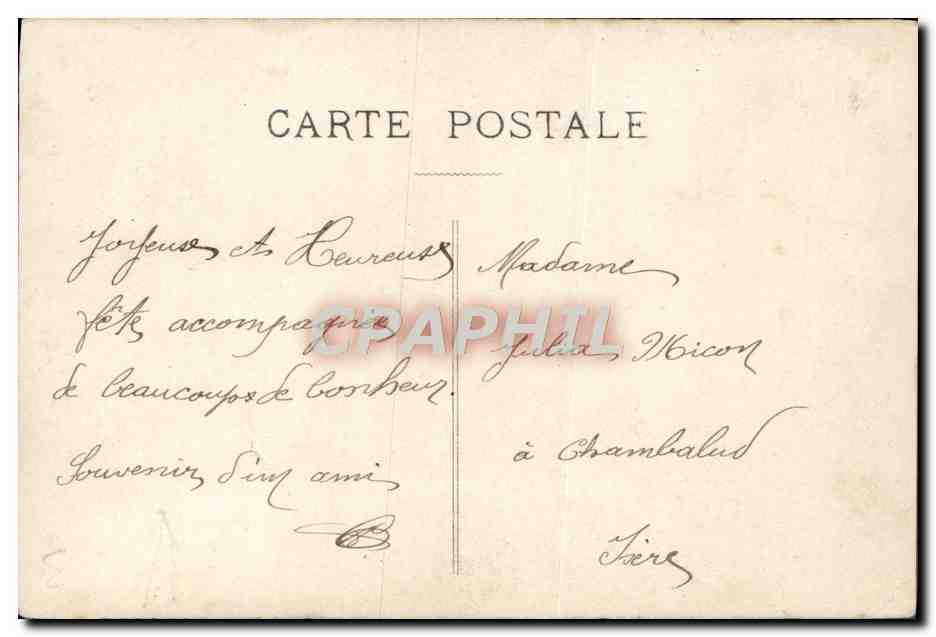 CARTE POSTALE
Joyeuse et Heureuse
fête accompagnée
de beaucoups de bonheur.
Souvenir d'un ami
Madame
Julia Micon
à Chambalud
Isère
CPAPHIL